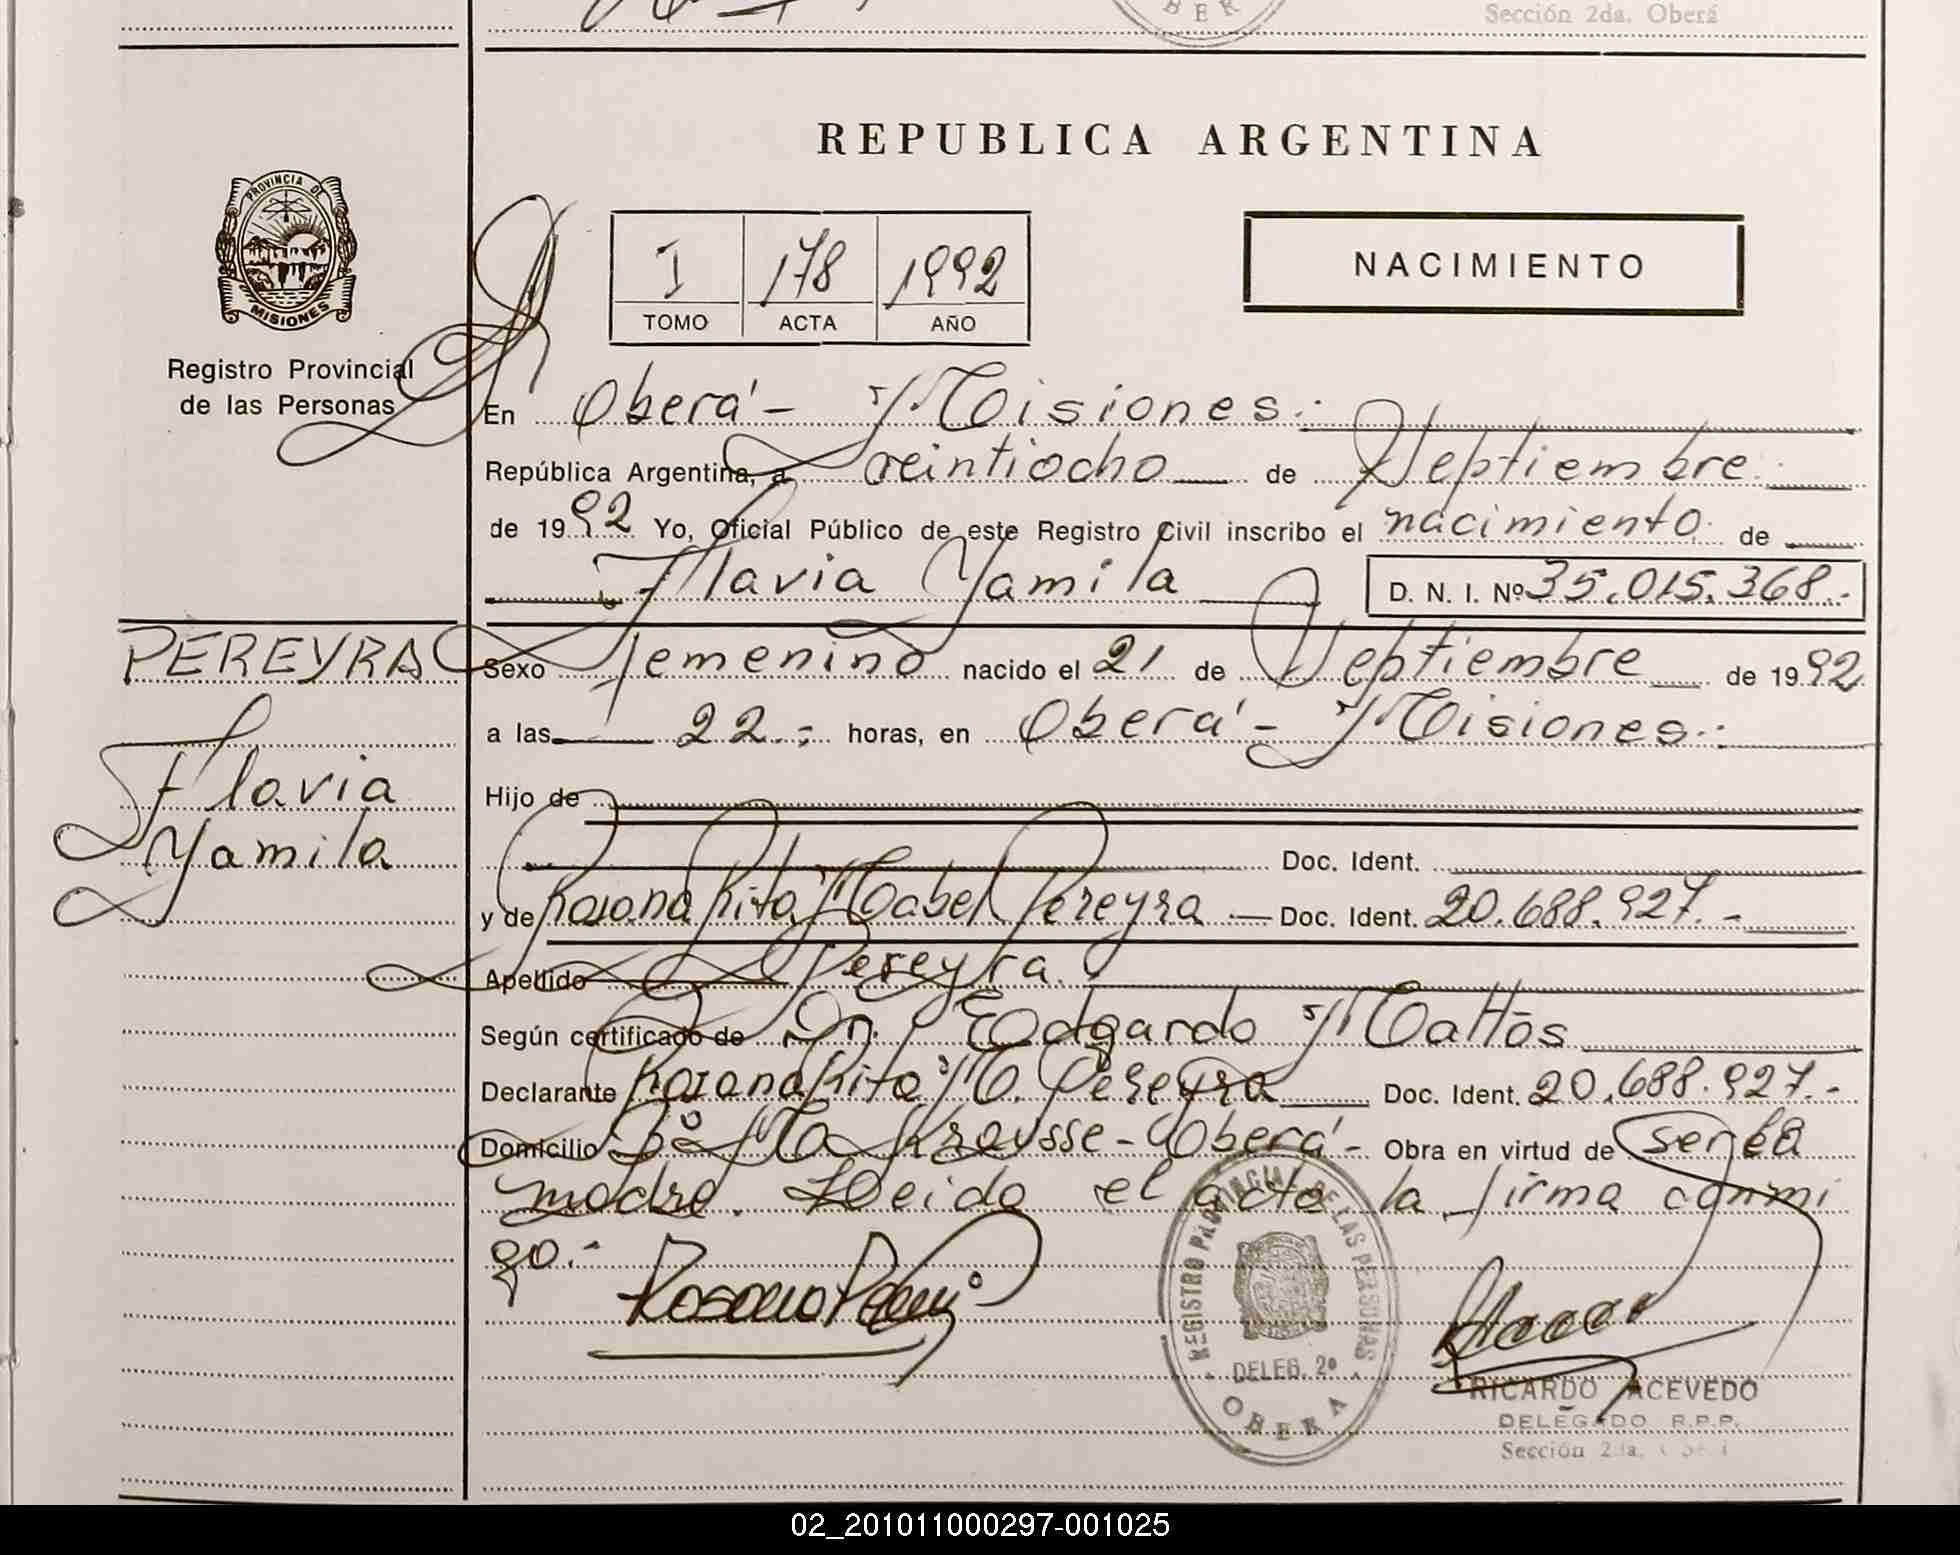 BER
Sección 2da. Oberá
REPUBLICA ARGENTINA
PROVINCIA DE
MISIONES
Registro Provincial
de las Personas
I 178 1992
TOMO ACTA AÑO
NACIMIENTO
En Oberá - Misiones.
República Argentina, a veintiocho de Septiembre
de 1992 Yo, Oficial Público de este Registro Civil inscribo el nacimiento de
Flavia Yamila D. N. I. Nº 35.015.368.-
PEREYRA
Flavia
Yamila
Sexo femenino nacido el 21 de Septiembre de 1992
a las 22.- horas, en Oberá - Misiones.
Hijo de
Doc. Ident.
y de Rosana Rita Mabel Pereyra Doc. Ident. 20.688.927.-
Apellido Pereyra.
Según certificado de Dr. Edgardo Mattos
Declarante Rosana Rita M. Pereyra Doc. Ident. 20.688.927.-
Domicilio Bº Krausse - Oberá - Obra en virtud de ser la
madre. Leida el acta la firma conmi
go.-
REGISTRO PROVINCIAL DE LAS PERSONAS
DELEG. 2º
OBERA
RICARDO ACEVEDO
DELEGADO R.P.P.
Sección 2da.
02_201011000297-001025